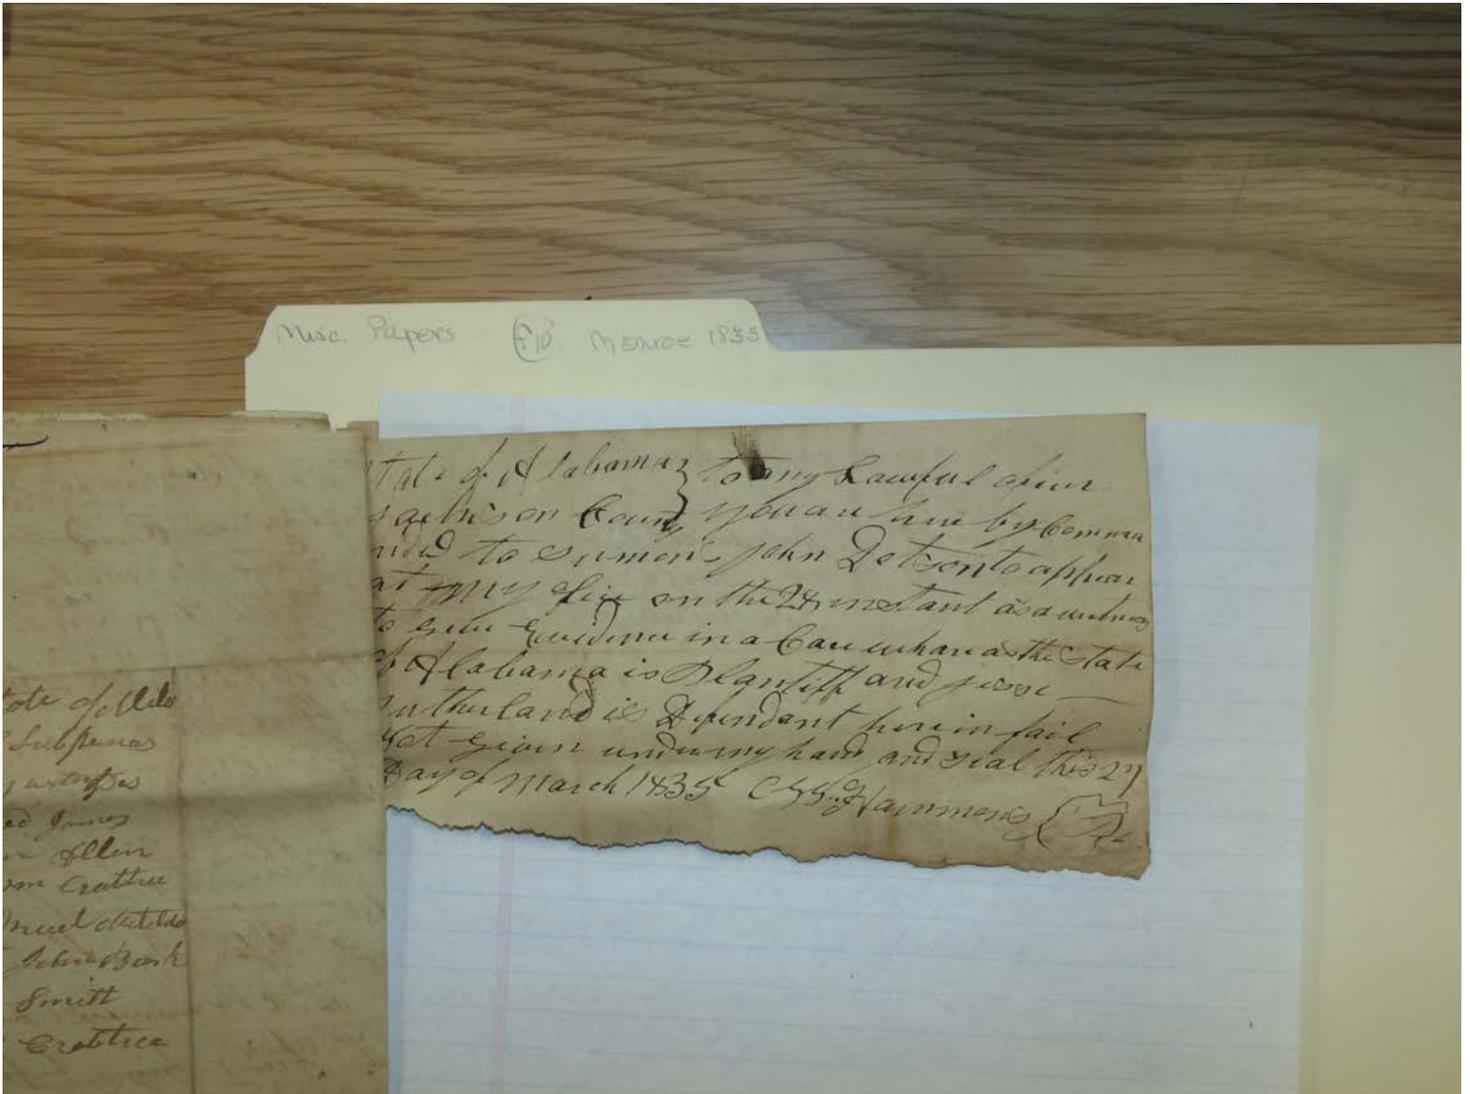 Misc. Papers F10 Monroe 1835
State of Alabama } to any Lawful oficer
Jackson County } you are here by Comma
nded to sumons John Dotson to appear
at my ofice on the 28 instant as a witness
to give Evidence in a Case whare as the State
of Alabama is Plantiff and Jesse
Sutherland is Defendant here in fail
Not given under my hand and seal this 27
Day of March 1835 Hammons
tate of Ala
Subpenas
witnesses
ed James
Allen
om Crabtree
muel
John
Smith
Crabtree